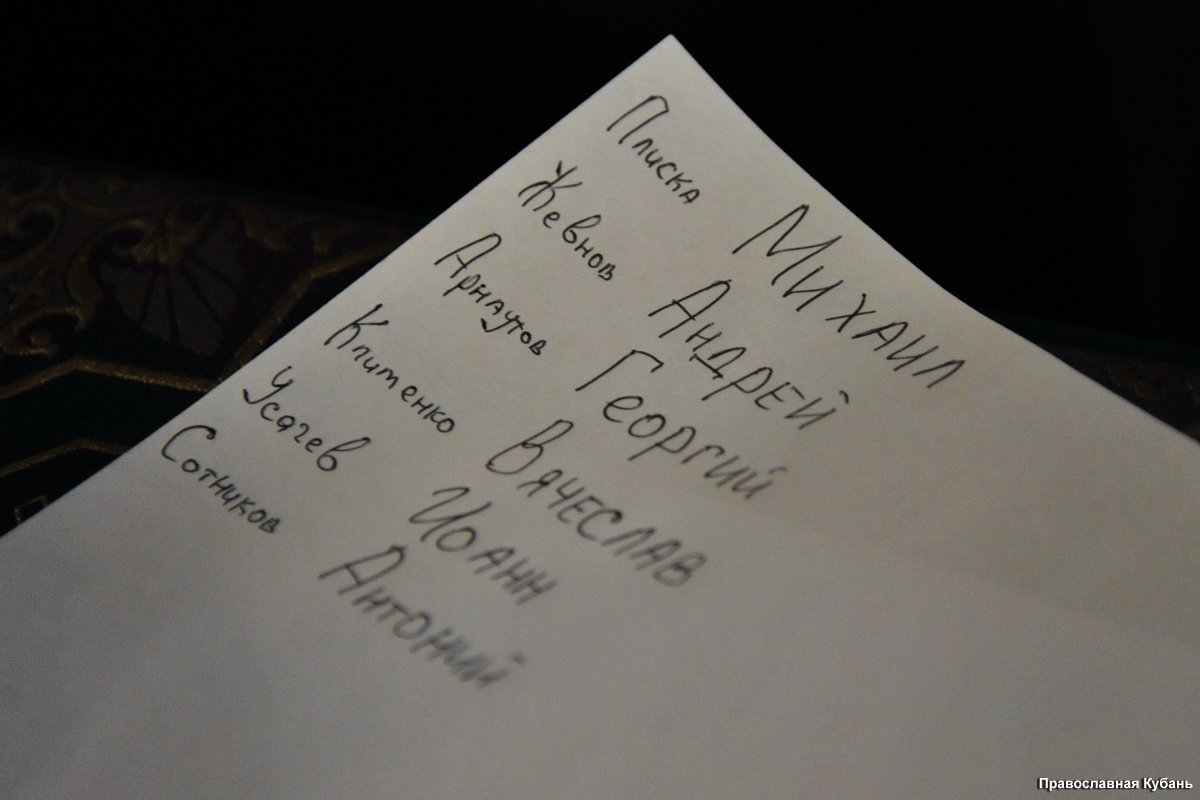 Плиска Михаил
Жевнов Андрей
Арнаутов Георгий
Клитенко Вячеслав
Усачев Иоанн
Сотников Антоний
Православная Кубань